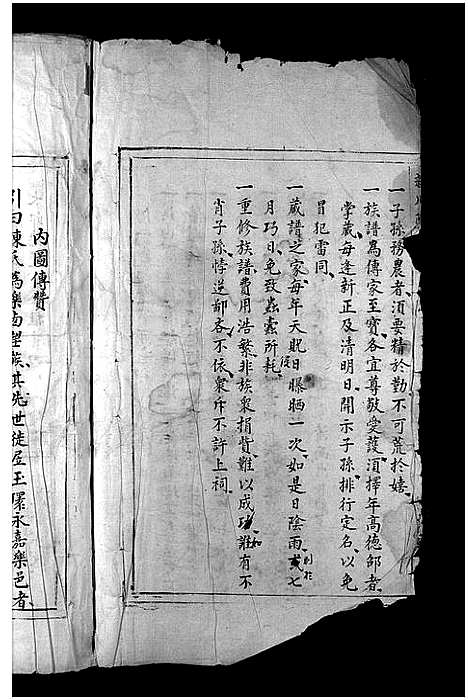 一子孫務農者須要精於勤不可荒於嬉
一族譜爲傳家至寶各宜尊敬愛護須擇年高德邵者
掌藏每逢新正及清明日開示子孫排行定名以免
冒犯雷同
一藏譜之家每年天貺日曝晒一次如是日陰雨或七
從
則於
月巧日免致蟲蠹所耗
一重修族譜費用浩繁非族衆捐貲難以成功誰有不
如
肖子孫悖逆鄙吝不依衆斥不許上祠
內圖傳贊
引曰陳氏爲樂南望族其先世徙居玉環永嘉樂邑者